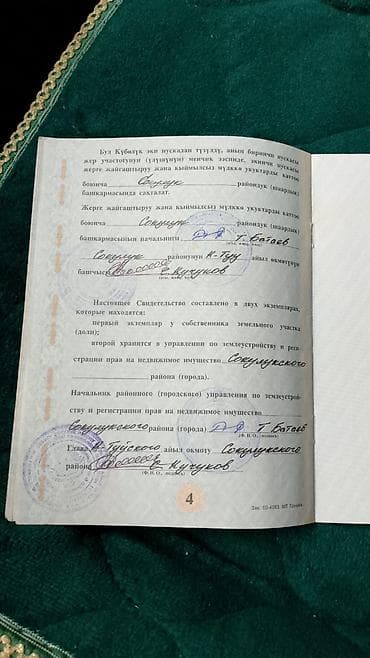 Бул Күбөлүк эки нускадан түзүлдү, анын биринчи нускасы
жер участогунун (үлүшүнүн) менчик ээсинде, экинчи нускасы
жерге жайгаштыруу жана кыймылсыз мүлккө укуктарды каттоо
боюнча Сокулук райондук (шаардык)
башкармасында сакталат.
Жерге жайгаштыруу жана кыймылсыз мүлккө укуктарды каттоо
боюнча Сокулук райондук (шаардык)
башкармасынын начальниги Т. Батаев
Сокулук районунун К-Туу айыл өкмөтүнүн
башчысы С. Кучуков
Настоящее Свидетельство составлено в двух экземплярах,
которые находятся:
первый экземпляр у собственника земельного участка
(доли);
второй хранится в управлении по землеустройству и реги-
страции прав на недвижимое имущество Сокулукского
района (города).
Начальник районного (городского) управления по землеустрой-
ству и регистрации прав на недвижимое имущество
Сокулукского района (города) Т Батаев
(Ф.И.О., подпись)
Глава К. Туйского айыл окмоту Сокулукского
района С Кучуков
(Ф.И.О., подпись)
4